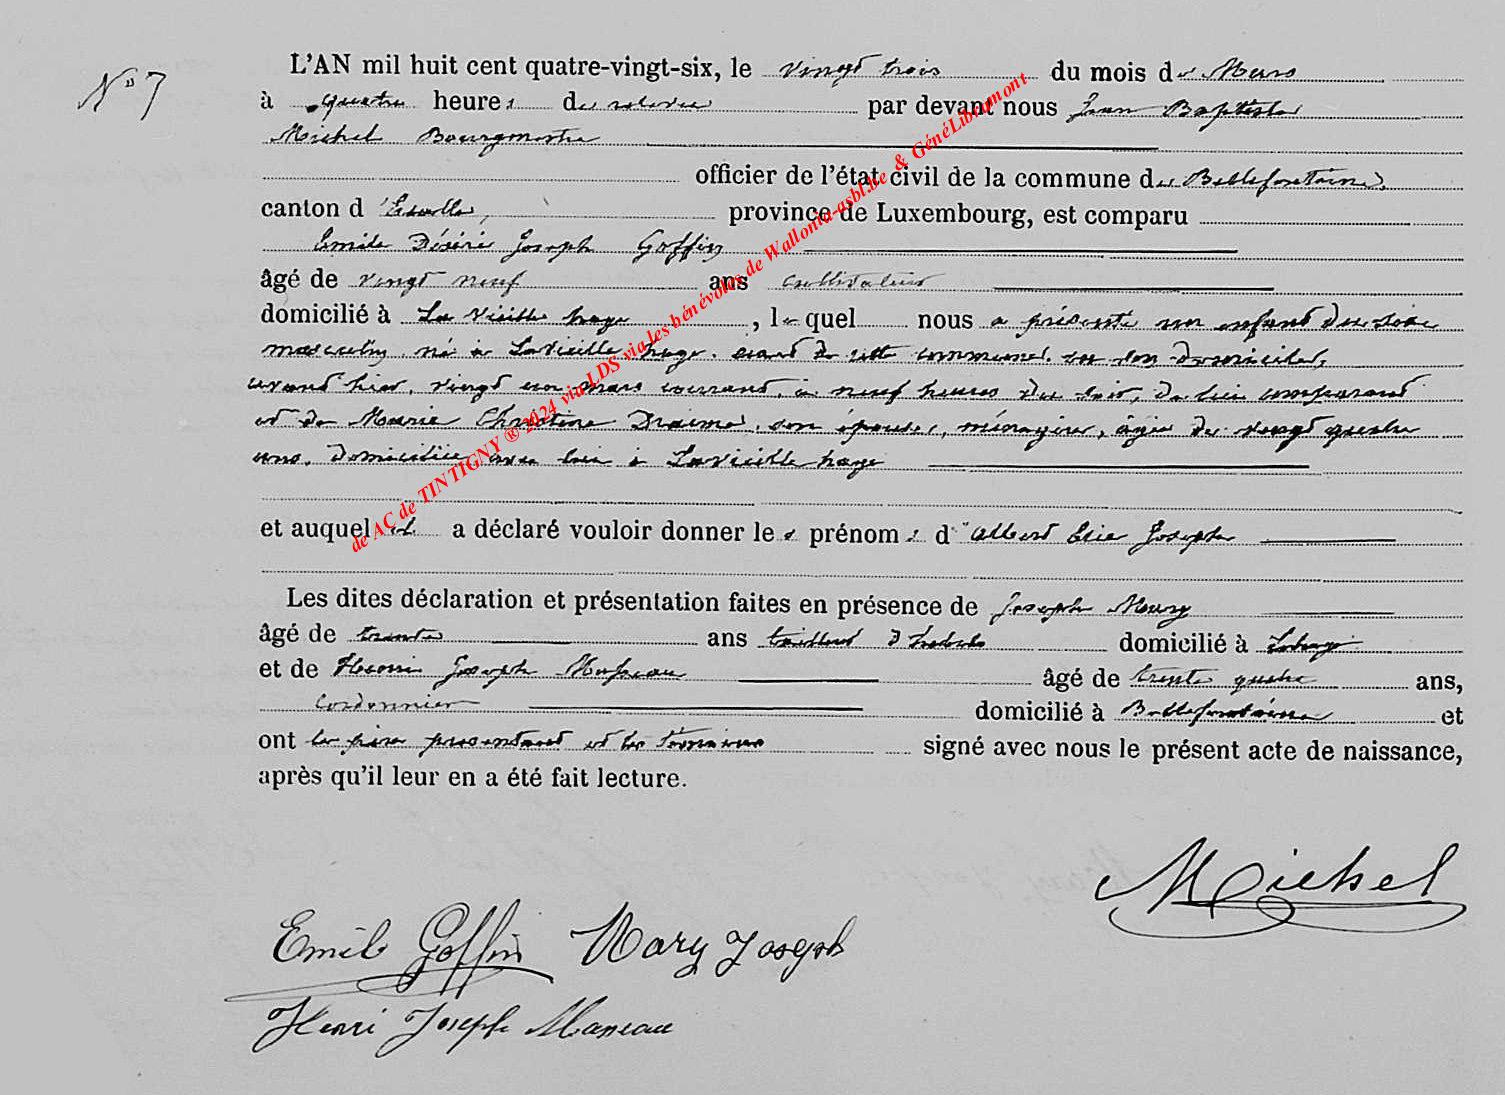 N° 7
L'AN mil huit cent quatre-vingt-six, le vingt trois du mois de Mars
à quatre heures de relevée par devant nous Jean Baptiste
Michel Bourgmestre
officier de l'état civil de la commune de Bellefontaine,
canton d'Etalle, province de Luxembourg, est comparu
Emile Désiré Joseph Goffin
âgé de vingt neuf ans cultivateur
domicilié à La Vieille haye, lequel nous a présenté un enfant du sexe
masculin, né à Lavieille haye, de cette commune, en son domicile,
avant hier, vingt un mars courant, à neuf heures du soir, de lui comparant
et de Marie Christine son épouse, ménagère, âgée de vingt quatre
ans, domiciliée avec lui à Lavieille haye
et auquel il a déclaré vouloir donner les prénoms d'Albert Elie Joseph
Les dites déclaration et présentation faites en présence de Joseph Mary
âgé de trente ans tailleur d'habits domicilié à
et de Henri Joseph Maneau âgé de trente quatre ans,
Cordonnier domicilié à Bellefontaine et
ont le père présentant et les témoins signé avec nous le présent acte de naissance,
après qu'il leur en a été fait lecture.
Michel
Emile Goffin Mary Joseph
Henri Joseph Maneau
de AC de TINTIGNY ® 2024 via LDS via les bénévoles de Wallonia-asbl.be & GénéLibramont